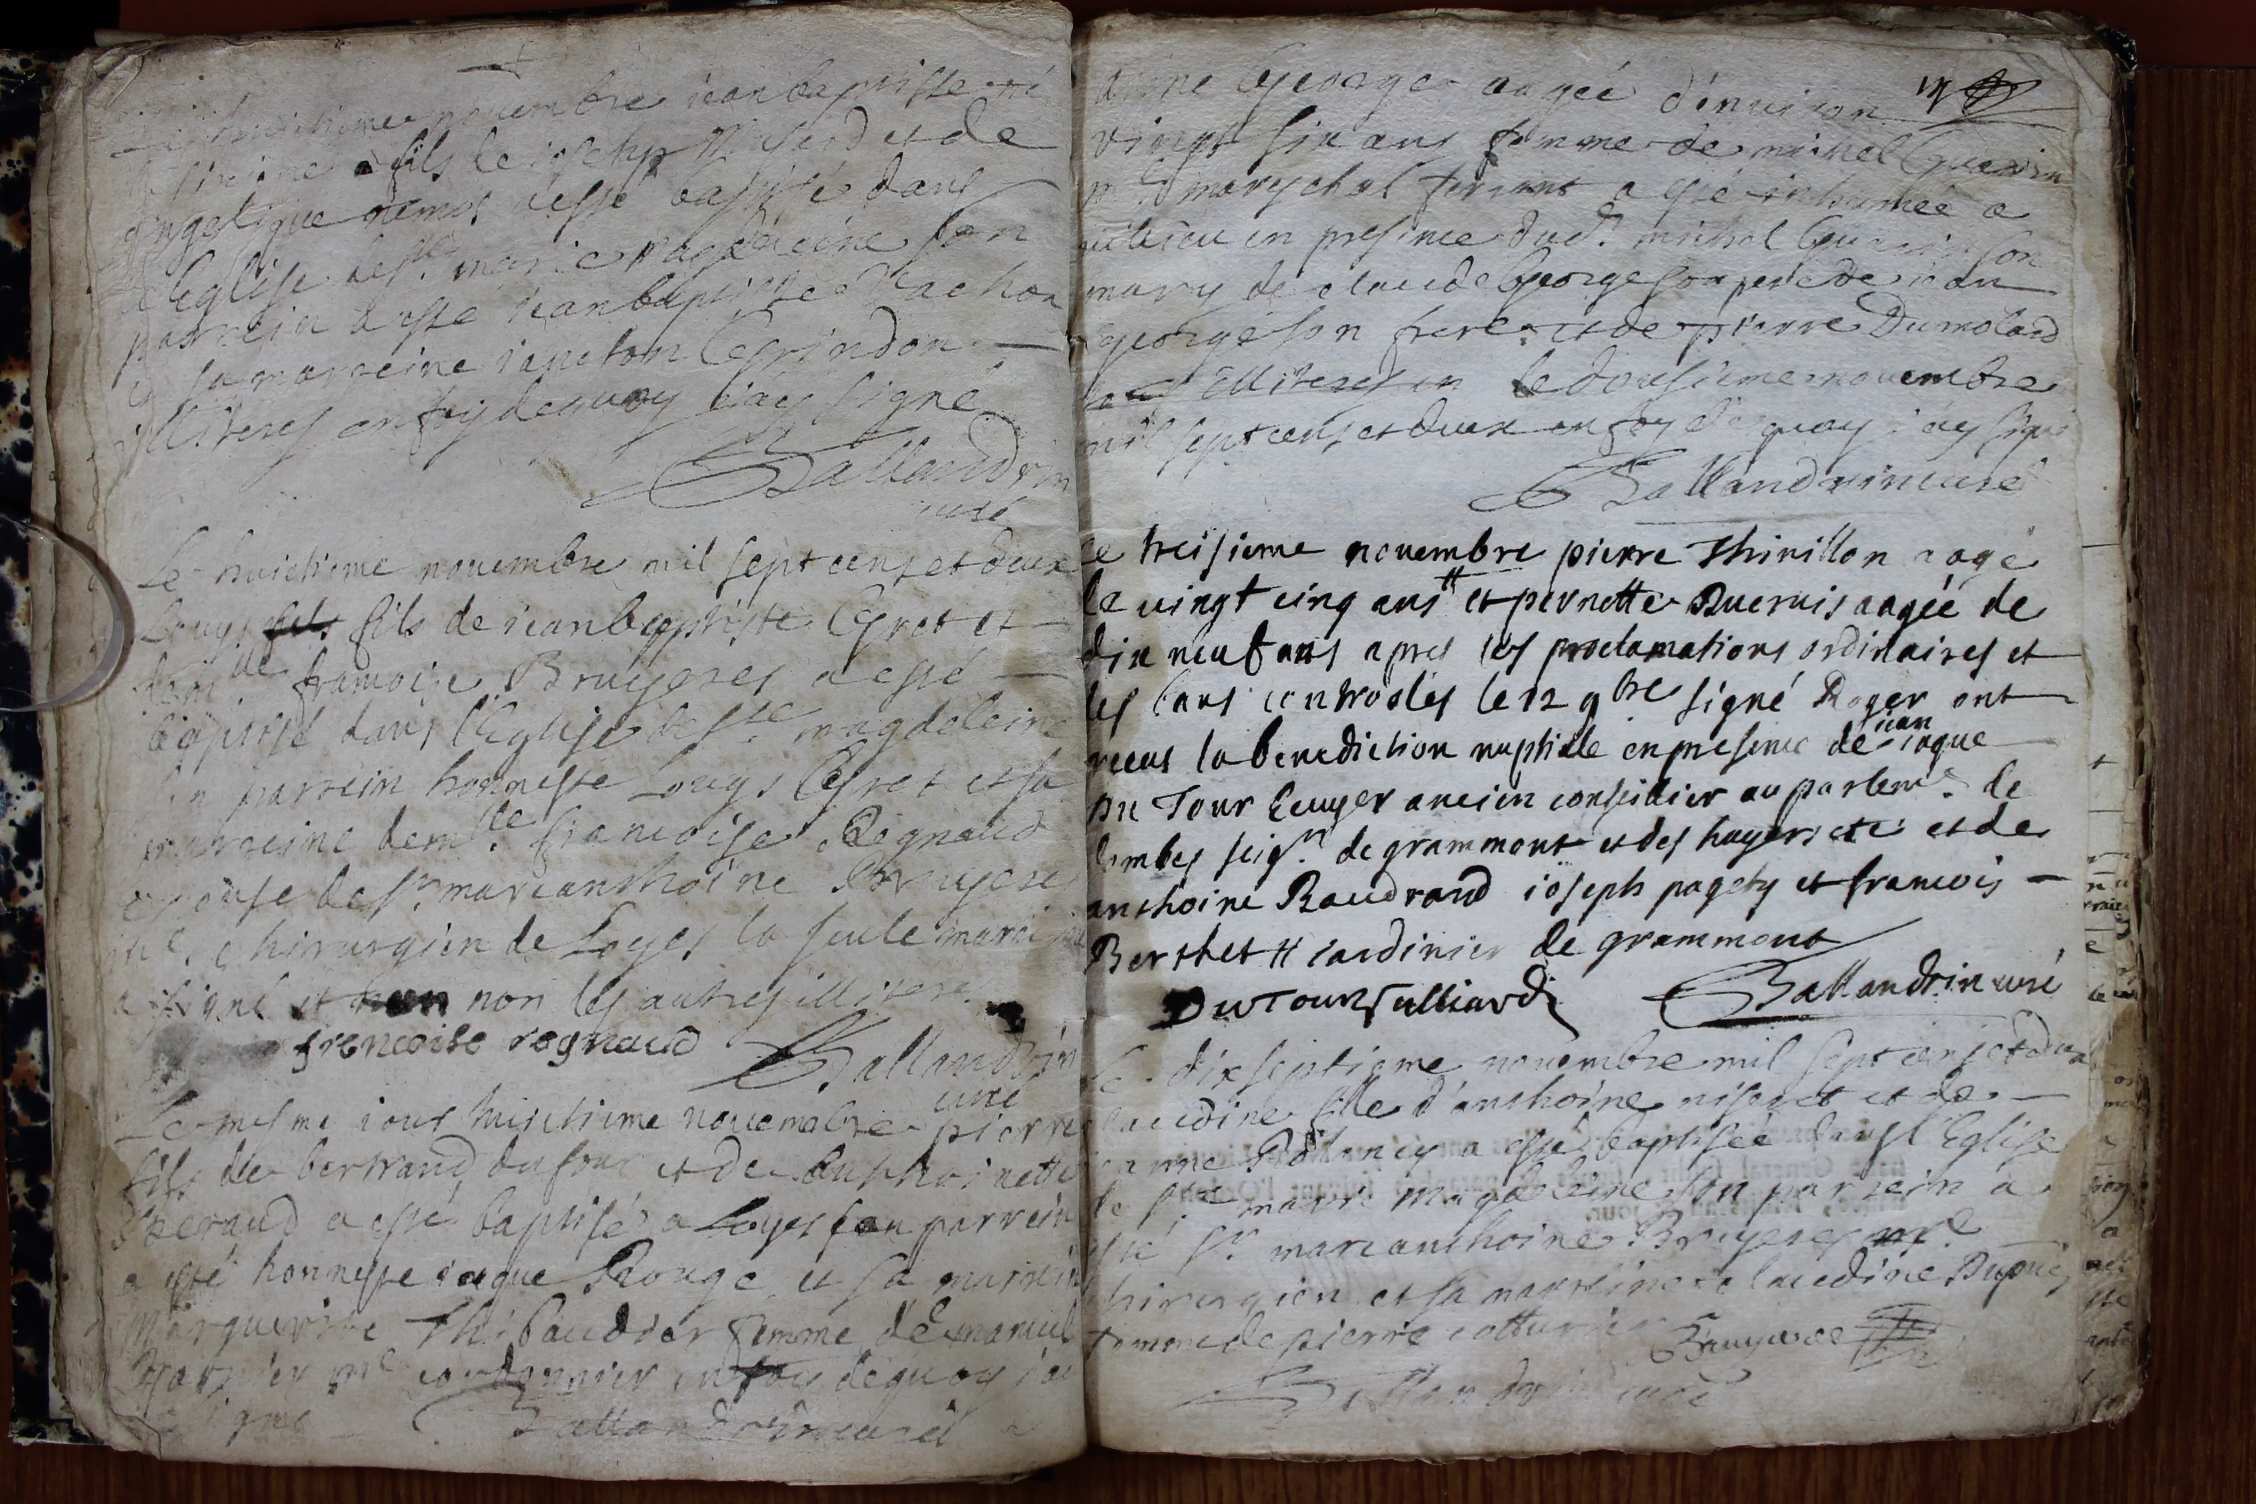 novembre jean baptiste né
fils de et de
angelique a esté baptisé dans
l'Eglise de ste marie magdeleine son
parrein a esté jean baptiste Vachon
et sa marreine janeton Cogrindon
illiteres en foy dequoy j'ay signé
Ballandrin
curé
Le huictieme novembre mil sept cens et deux
Louys fils de jean baptiste Cyvet et
de francoise Bruyeres a esté
baptisé dans l'Eglise de ste magdeleine
son parrein honneste Louys Cyvet et sa
marreine demlle francoise Regnaud
epouse de sr marcanthoine Bruyeres
me chirurgien de Loyes la seule marreine
a signé et non les autres illiteres
frencoise regnaud Ballandrin
curé
Le mesme jour huictieme novembre pierre
fils de bertrand du four et de Anthoinette
Peraud a esté baptisé a Loyes son parrein
a esté honneste jaque Rouge et sa marrein
Marguerite Thibaudier femme d'Emanuel
Garnier me cordonnier en foy dequoy j'ai
signé Ballandrin curé
George aagée d'environ
vingt six ans femme de michel Guerin
me mareschal ferrant a esté inhumée a
en presence dud. michel Guerin son
mary de claude George son pere de jean
George son frere et de pierre Dumolard
illiteres le dousieme novembre
mil sept cens et deux en foy dequoy j'ay signé
Ballandrin curé
Le treisieme novembre pierre Thivillon aagé
de vingt cinq ans et pernette Buernis aagée de
dix neuf ans apres les proclamations ordinaires et
les bans controolés le 12 9bre signé Roger ont
receus la benediction nuptiale en presence de jean jaque
Du Tour Ecuyer ancien conseiller au parlemt de
Dombes seigr de grammont et des huyers etc et de
anthoine Baudrand joseph pagety et francois
Berthet jardinier de grammont
DuTour Vulliard Ballandrin curé
Le dixseptieme novembre mil sept cens et deux
Claudine fille d'anthoine niseret et de
janne a esté baptisée dans l'Eglise
de ste marie magdeleine son parrein a
esté sr marcanthoine Bruyeres me
chirurgien et sa marreine claudine Dupuis
femme de pierre cotturier
Bruyeres
Ballandrin curé